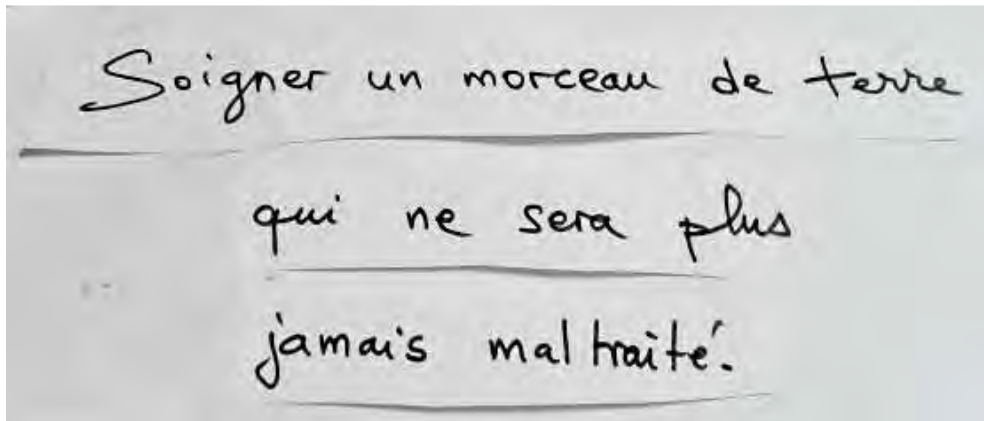 Soigner un morceau de terre
qui ne sera plus
jamais maltraité.